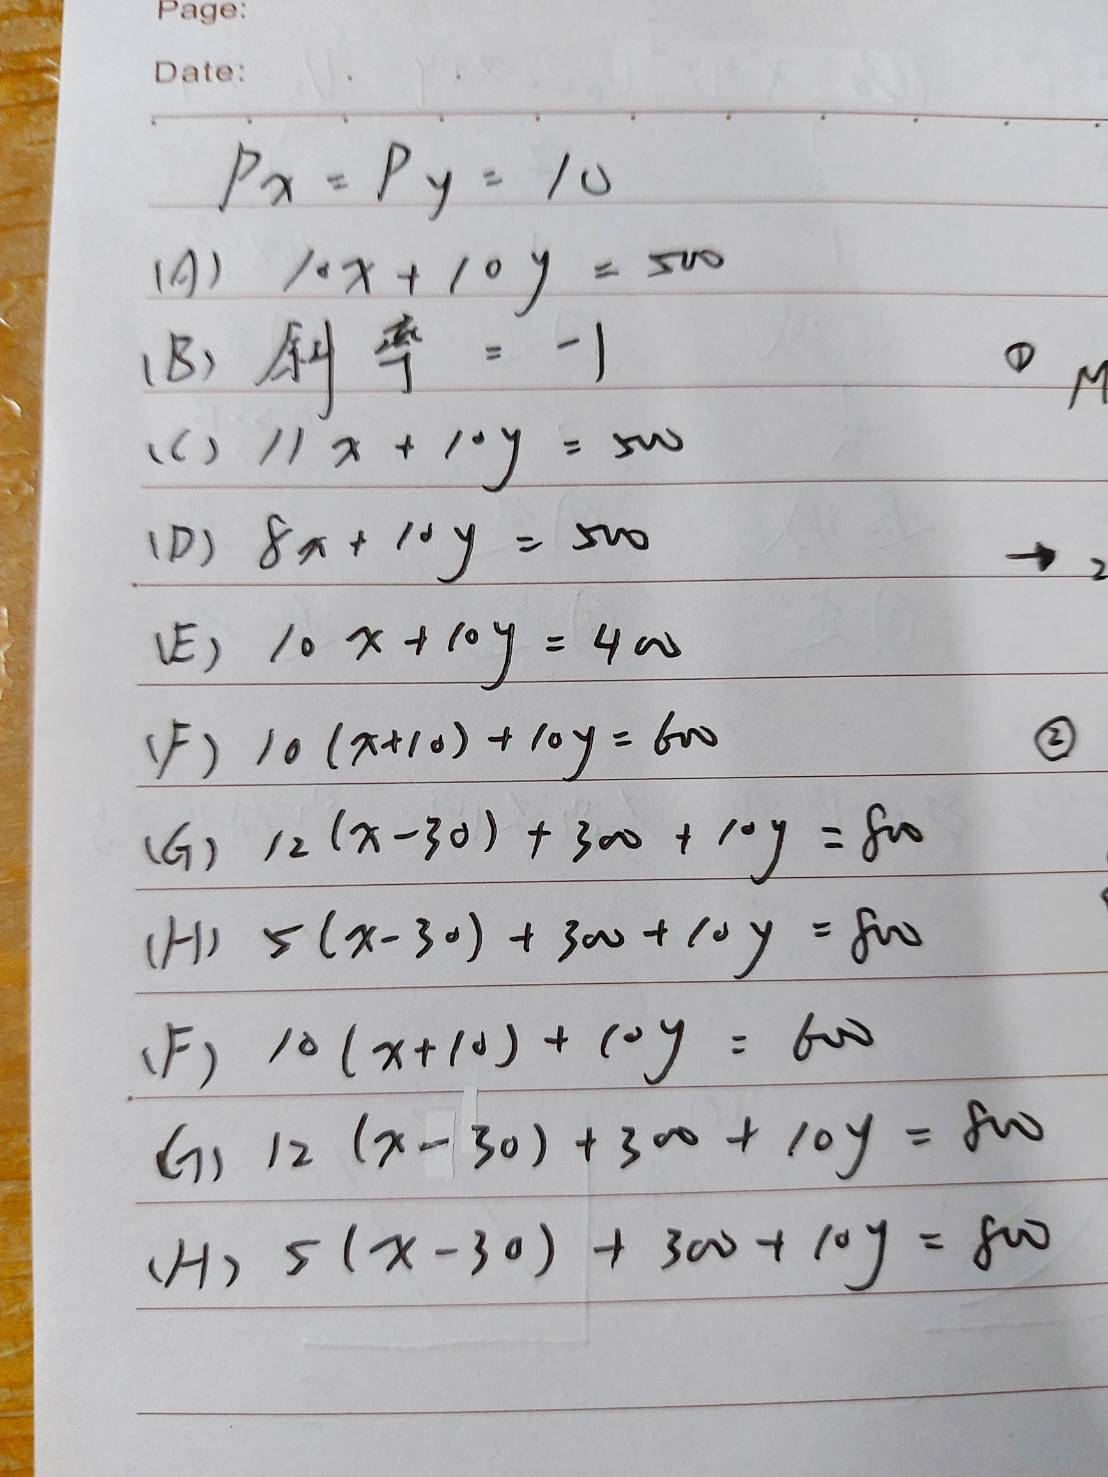 Page:
Date:
Px = Py = 10
(A) 10x + 10y = 500
(B) 斜率 = -1
①
M
(C) 11x + 10y = 500
(D) 8x + 10y = 500
→ 2
(E) 10x + 10y = 400
(F) 10(x+10) + 10y = 600
②
(G) 12(x-30) + 300 + 10y = 800
(H) 5(x-30) + 300 + 10y = 800
(F) 10(x+10) + 10y = 600
(G) 12(x-30) + 300 + 10y = 800
(H) 5(x-30) + 300 + 10y = 800